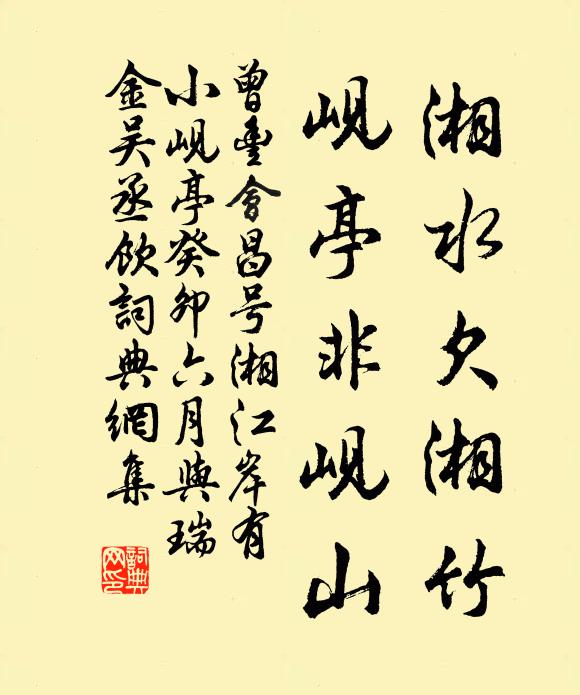 湘水欠湘竹
岘亭非岘山
曾豊會昌号湘江岸有
小岘亭癸卯六月與瑞
金吴丞飲詞典網集
詞典网印